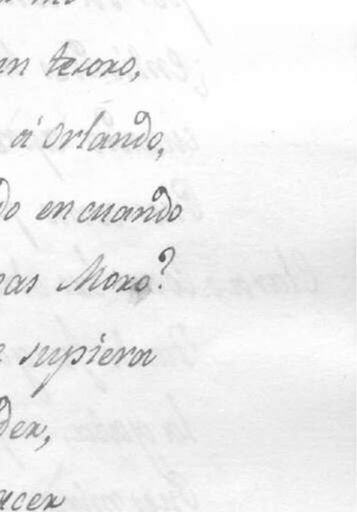 un tesoro,
á Orlando,
do en cuando
as Moro?
supiera
der,
acer